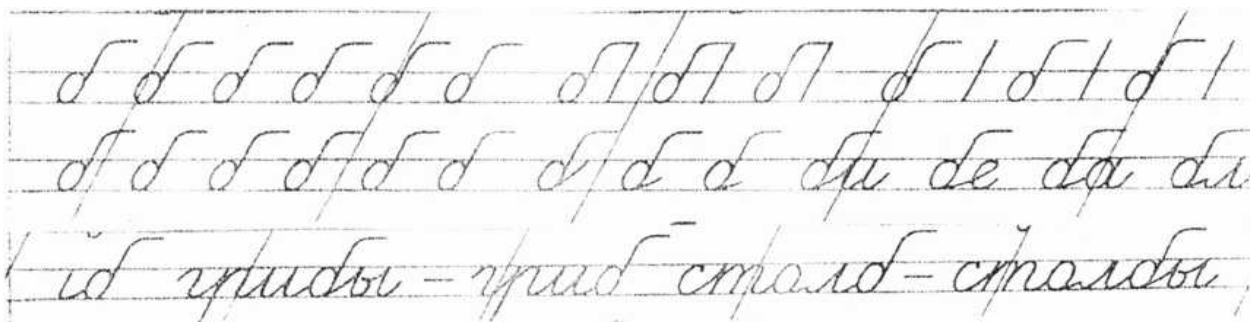 б б б б б б б/ б/ б/ б / б / б /
б б б б б б б б б би бе ба бл
иб грибы – гриб столб – столбы